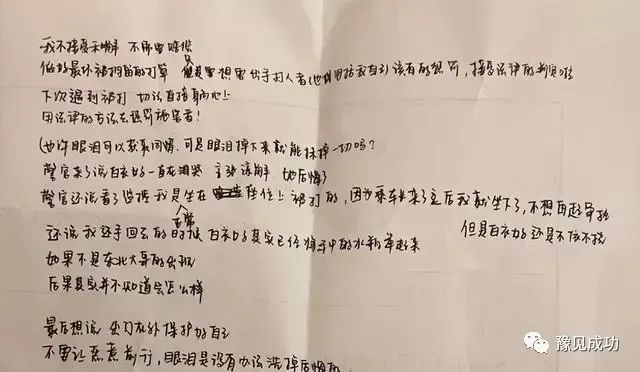 我不接受和解 不需要赔偿
做好最坏被拘留的打算 但是要想要出手打人者(也包括我自己)该有的惩罚,接受法律的判责
下次遇到被打 切记直接躺地上
用法律的方法去惩罚施暴者!
(也许眼泪可以获取同情.可是眼泪掉下来就能抹掉一切吗?
警官来了说白衣女一直在泪哭 主张谅解 她后悔了
警官还说看了监控 我是坐在座位上被打的,因为乘车长来了之后我就坐下了,不想再起争执
但是白衣女还是不依不挠
还说我还手回去的时候 白衣女其实已经将手中的水瓶举起来
如果不是东北大哥的出现
后果其实并不知道会怎么样
最后想说 出门在外保护好自己
不要让恶意前行,眼泪是没有办法洗掉后悔的
豫见成功